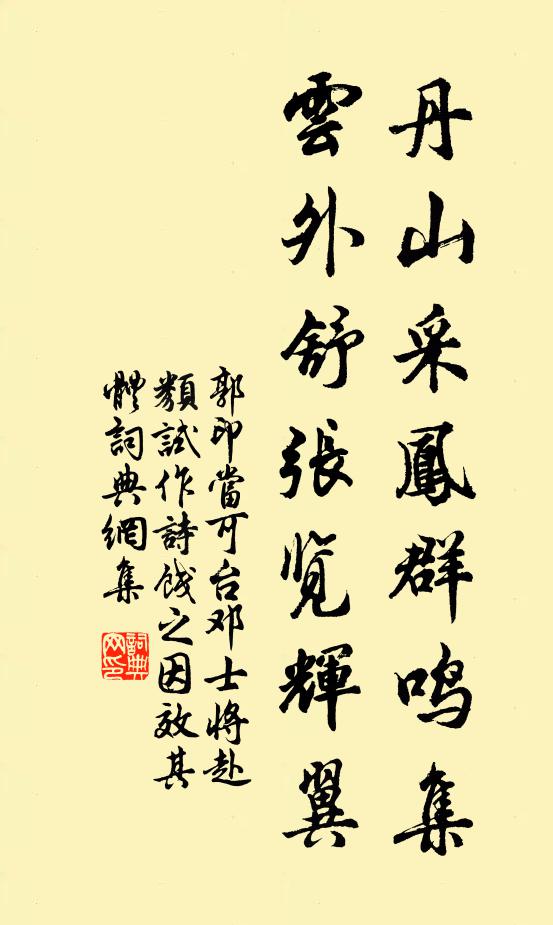 丹山采鳳群鸣集
雲外舒張览輝翼
郭印當可台邓士將赴
類試作詩餞之因效其
體詞典網集
詞典
网印